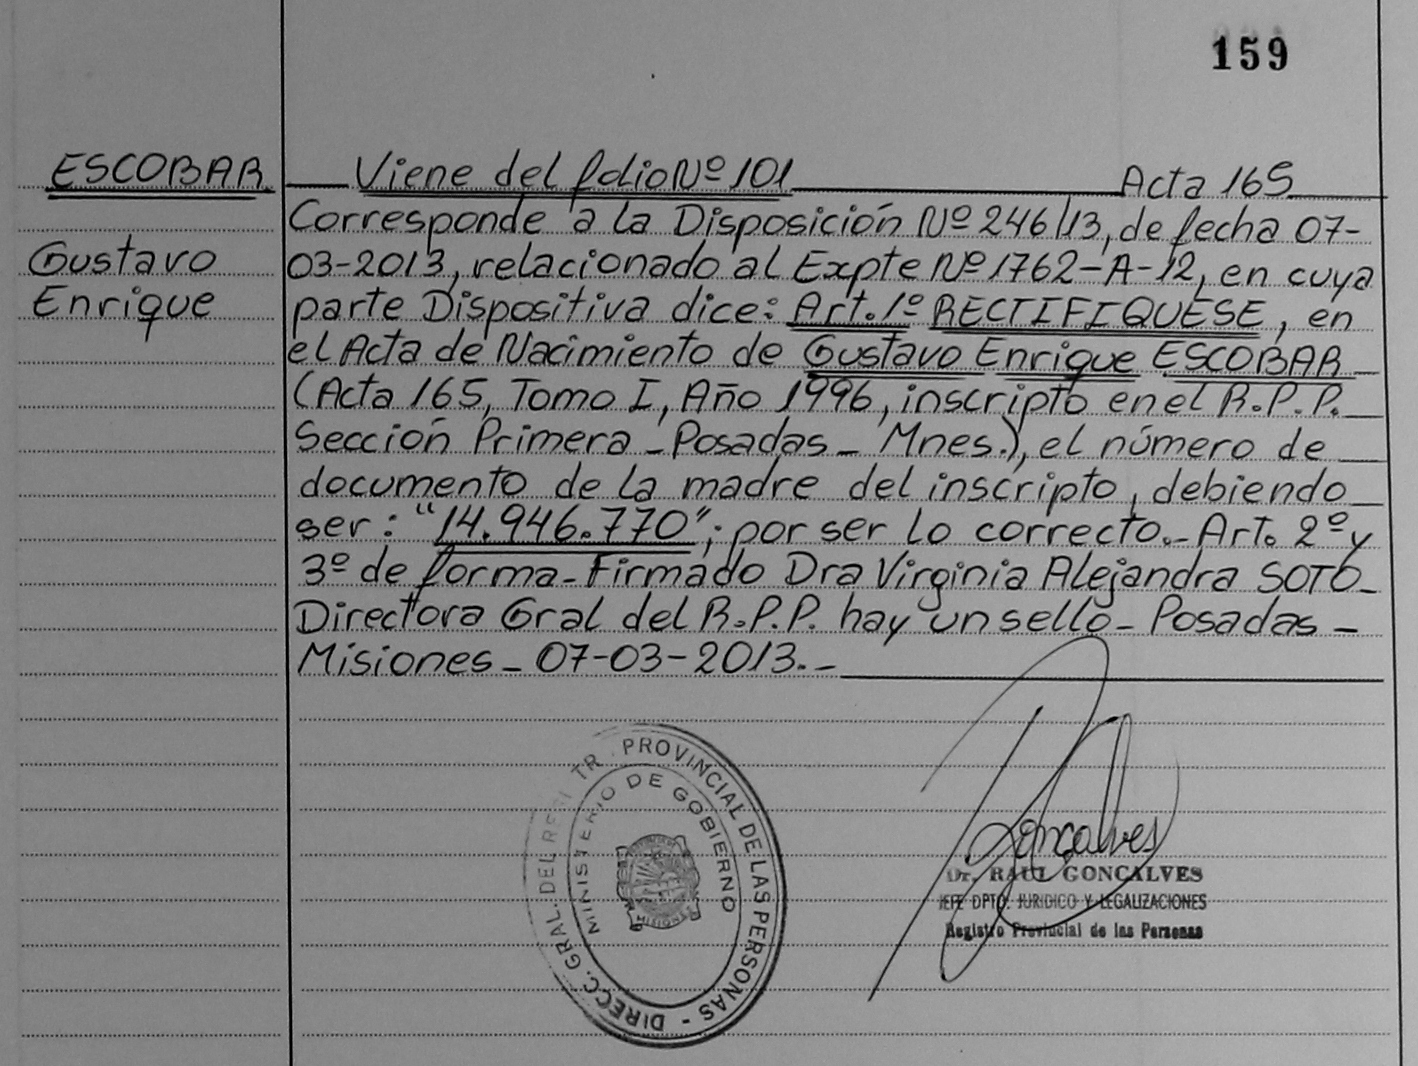 159
ESCOBAR
Gustavo
Enrique
Viene del folio Nº 101 Acta 165
Corresponde a la Disposición Nº 246/13, de fecha 07-
03-2013, relacionado al Expte Nº 1762-A-12, en cuya
parte Dispositiva dice: Art. 1º RECTIFIQUESE, en
el Acta de Nacimiento de Gustavo Enrique ESCOBAR
(Acta 165, Tomo I, Año 1996, inscripto en el R.P.P.
Sección Primera - Posadas - Mnes.), el número de
documento de la madre del inscripto, debiendo
ser: "14.946.770"; por ser lo correcto.- Art. 2º y
3º de forma - Firmado Dra Virginia Alejandra SOTO -
Directora Gral del R.P.P. hay un sello - Posadas -
Misiones - 07-03-2013.-
DIRECC. GRAL. DEL REGI TR. PROVINCIAL DE LAS PERSONAS -
MINISTERIO DE GOBIERNO
MISIONES
Goncalves
Dr. RAUL GONCALVES
JEFE DPTO. JURIDICO Y LEGALIZACIONES
Registro Provincial de las Personas